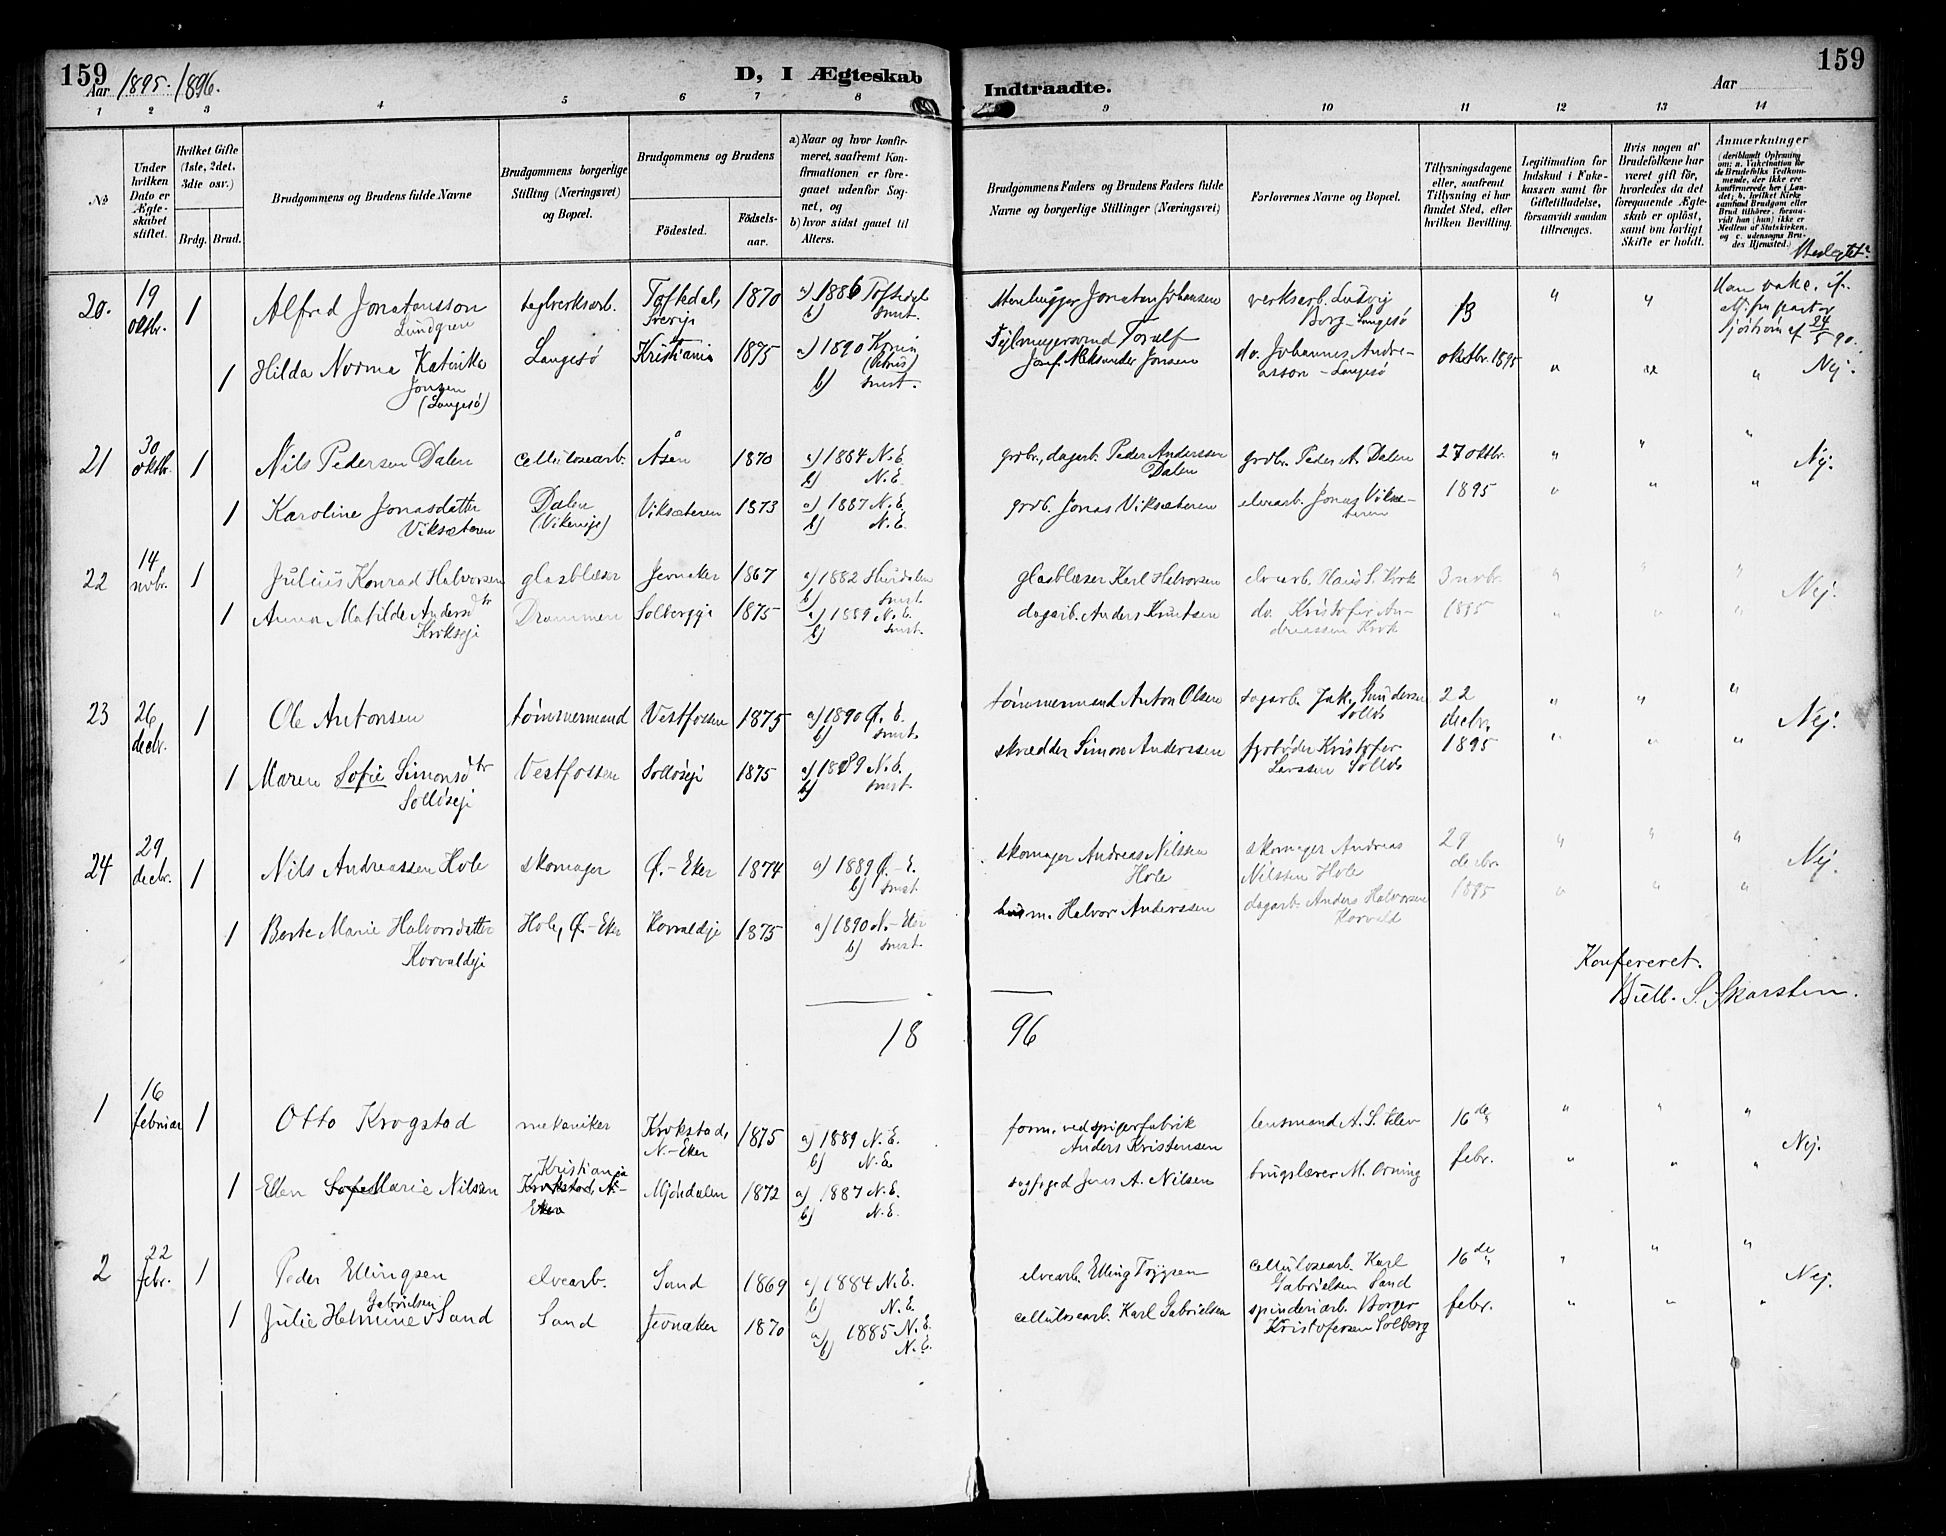 159
Aar 1895. 1896.
D, I Ægteskab
Indtraadte.
Aar
159
1 2 3 4 5 6 7 8
9 10 11 12 13 14
No
Under hvilken Dato er Ægteskabet stiftet.
Hvilket Gifte (1ste, 2det, 3die osv.)
Brdg. Brud.
Brudgommens og Brudens fulde Navne
Brudgommens borgerlige Stilling (Næringsvei) og Bopæl.
Brudgommens og Brudens
Fødested.
Fødselsaar.
a) Naar og hvor konfirmeret, saafremt Konfirmationen er foregaaet udenfor Sognet, og
b) hvor sidst gaaet til Alters.
Brudgommens Faders og Brudens Faders fulde Navne og borgerlige Stillinger (Næringsvei)
Forlovernes Navne og Bopæl.
Tillysningsdagene eller, saafremt Tillysning ei har fundet Sted, efter hvilken Bevilling.
Legitimation for Indskud i Enkekassen samt for Giftetilladelse, forsaavidt saadan tiltrænges.
Hvis nogen af Brudefolkene har været gift før, hvorledes da det foregaaende Ægteskab er opløst, samt om lovligt Skifte er holdt.
Anmærkninger
(deriblandt Oplysning om: a. Vakcination for de Brudefolks Vedkommende, der ikke ere konfirmerede her i Landet; b. hvilket Kirkesamfund Brudgom eller Brud tilhører, forsaavidt han (hun) ikke er Medlem af Statskirken, og c. udensogns Brudes Hjemsted.)
20. 19 oktbr. 1 Alfred Jonatansson Lundgren teglverksarb. Toftedal, Sverige 1870 a) 1886 Toftedal b) smst. Stenhugger Jonatan Johansen verksarb. Ludvig Borg - Langesø 13 " "
1 Hilda Norma Katinka Jonsen (Langesø) Langesø Kristiania 1875 a) 1890 b) smst. Josef Aleksander Jonsen do. Johannes Andreasson - Langesø oktbr. 1895 " " " Nej.
21 30 oktbr. 1 Nils Pedersen Dalen cellulosearb. Åsen 1870 a) 1884 N. E. b) N. E. grbr., dagarb. Peder Anderssen Dalen grdbr. Peder A. Dalen 27 oktbr. " " " Nej.
1 Karoline Jonasdatter Viksæteren Dalen (Vikeneje) Viksæteren 1873 a) 1887 N. E. b) N. E. grdb. Jonas Viksæteren elvearb. Jonas Viksæteren 1895 " " "
22 14 nvbr. 1 Julius Konrad Halvorsen glasblæser Jevnaker 1867 a) 1882 Hurdalen b) smst. glasblæser Karl Halvorsen elvearb. Hans S. Krok 3 nvbr. " " " Nej.
1 Anna Matilde Andersdtr Krokseje Drammen Solbergeje 1875 a) 1889 N. E. b) smst. dagarb. Anders Knutsen do. Kristofer Andreassen Krok 1895 " " "
23 26 decbr. 1 Ole Antonsen tømmermand Vestfossen 1875 a) 1890 Ø. E. b) smst. tømmermand Anton Olsen dagarb. Jak. Gundersen Solløs 22 decbr. " " " Nej.
1 Maren Sofie Simonsdtr Solløseje Vestfossen Solløseje 1875 a) 1889 N. E. b) smst. skrædder Simon Anderssen fyrbøder Kristofer Larssen Solløs 1895 " " "
24 29 decbr. 1 Nils Andreassen Hole skomager Ø.- Eker 1874 a) 1889 Ø.- E. b) smst. skomager Andreas Nilssen Hole skomager Andreas Nilssen Hole 29 decbr. " " " Nej.
1 Berte Marie Halvorsdatter Horvaldeje Hole, Ø.- Eker Horvaldeje 1875 a) 1890 N.- Eker b) smst. husm. Halvor Anderssen dagarb. Anders Halvorsen Horvald 1895 " " "
Konfereret.
S. Skarsten.
18 96
1 16 februar 1 Otto Krogstad mekaniker Krokstad, N.- Eker 1875 a) 1889 N. E. b) N. E. form. ved spigerfabrik Anders Kristensen lensmand A. S. Klev 16de " " " Nej.
1 Ellen Sofie Marie Nilsen Kristiania Krokstad, N.- Eker Mjøndalen 1872 a) 1887 N. E. b) N. E. sagfoged Jens A. Nilsen brugslærer M. Orning febr. " " "
2 22 febr. 1 Peder Ellingsen elvearb. Sand 1869 a) 1884 N. E. b) N. E. elvearb. Elling Torgersen cellulosearb. Karl Gabrielsen Sand 16de " " " Nej.
1 Julie Helmine Gabrielsen Sand Sand Jevnaker 1870 a) 1885 N. E. b) N. E. cellulosearb. Karl Gabrielsen spinderiarb. Borger Kristofersen Solberg febr. " " "